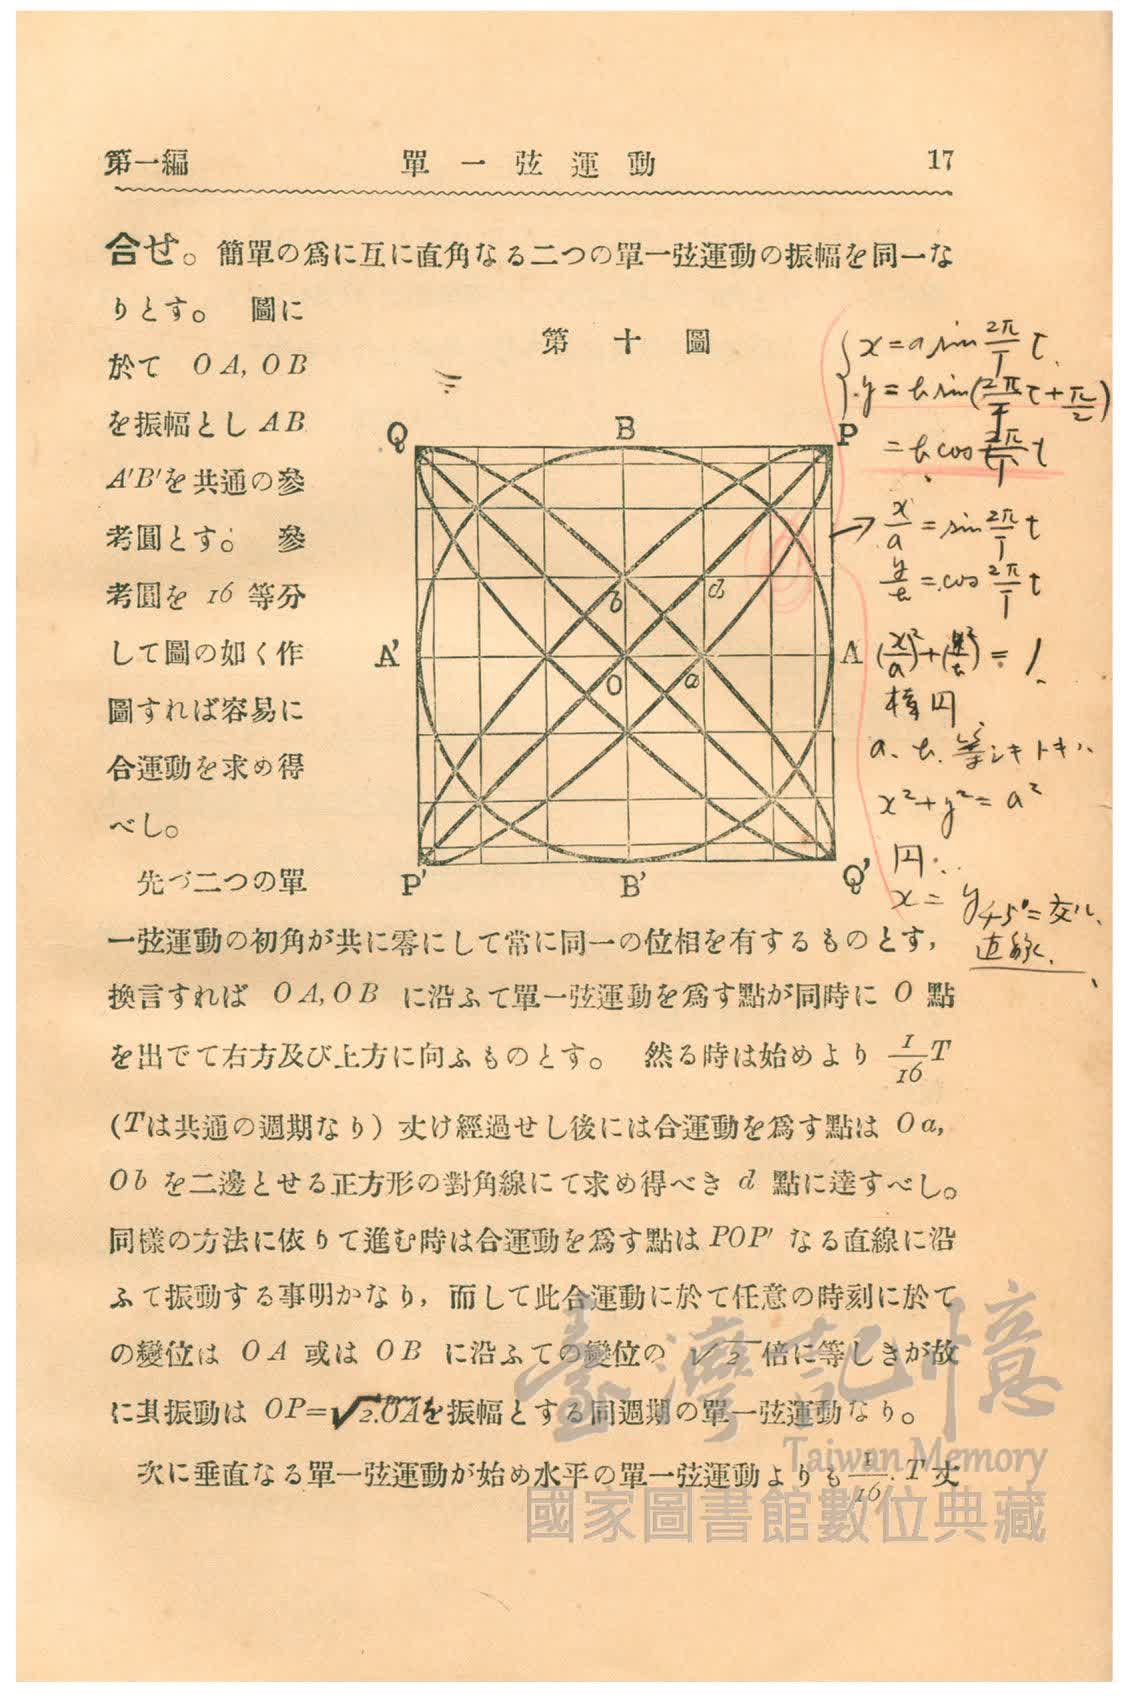 第一編 單一弦運動 17
合せ。簡單の爲に互に直角なる二つの單一弦運動の振幅を同一な
りとす。 圖に
於て OA, OB
を振幅とし AB
A'B'を共通の參
考圓とす。 參
考圓を 16 等分
して圖の如く作
圖すれば容易に
合運動を求め得
べし。
第十圖
Q B P
b d
A' O a A
P' B' Q'
x = a sin 2π/T t
y = b sin(2π/T t + π/2)
= b cos 2π/T t
x/a = sin 2π/T t
y/b = cos 2π/T t
(x/a)² + (y/b)² = 1
楕円
a、b、等シキトキハ
x² + y² = a²
円
x = y 45°=交ル
直線
先づ二つの單
一弦運動の初角が共に零にして常に同一の位相を有するものとす,
換言すれば OA,OB に沿ふて單一弦運動を爲す點が同時に O 點
を出でて右方及び上方に向ふものとす。 然る時は始めより 1/16 T
(Tは共通の週期なり) 丈け經過せし後には合運動を爲す點は Oa,
Ob を二邊とせる正方形の對角線にて求め得べき d 點に達すべし。
同樣の方法に依りて進む時は合運動を爲す點は POP' なる直線に沿
ふて振動する事明かなり, 而して此合運動に於て任意の時刻に於て
の變位は OA 或は OB に沿ふての變位の √2 倍に等しきが故
に其振動は OP=√2.OAを振幅とする同週期の單一弦運動なり。
次に垂直なる單一弦運動が始め水平の單一弦運動よりも 1/16 T 丈
臺灣記憶
Taiwan Memory
國家圖書館數位典藏